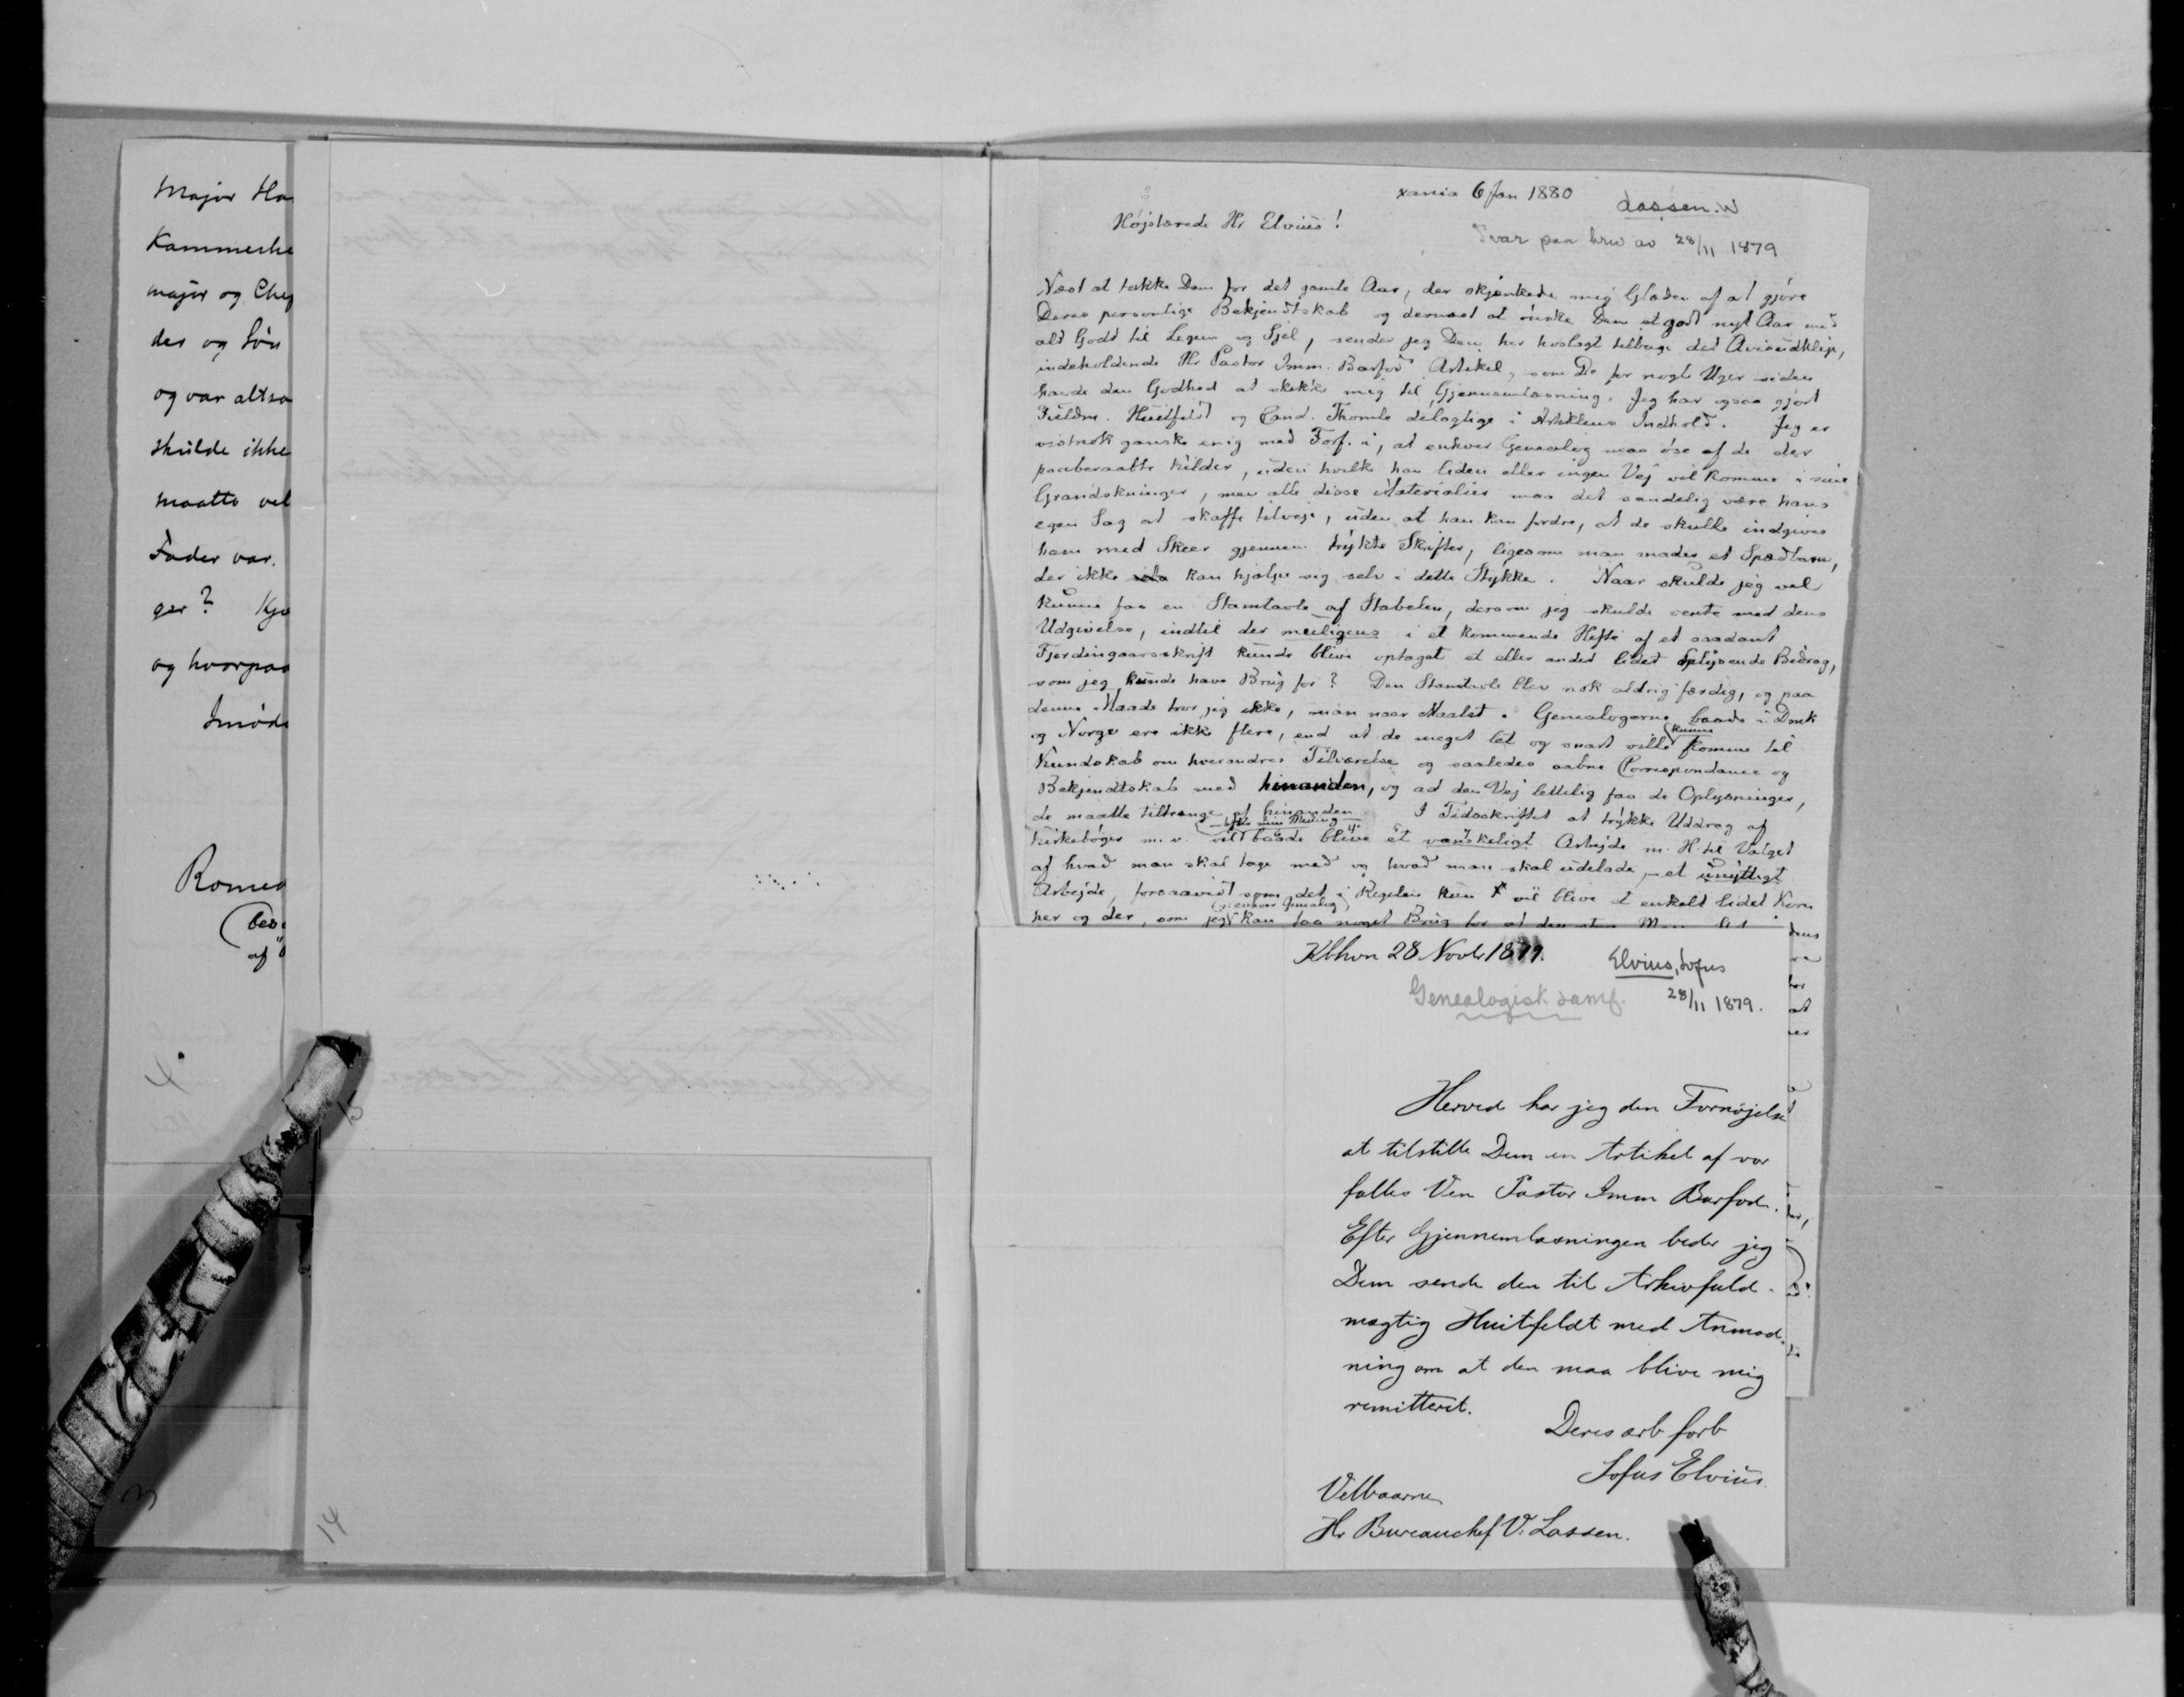 Major Ha
Kammerhe
major og Chef
der og Søn
og var altsa
skulde ikke
maatte vel
Fader var.
ger? Kje
og hvorpaa
Imøde
Romed
(bes
af
14
xania 6 Jan 1880
Lassen. W
Højstærede Hr Elvius!
Svar paa brev av 28/11 1879
Næst at takke Dem for det gamle Aar, der skjænkede mig Glæden af at gjøre
Deres personlige Bekjendtskab og dernæst at ønske Dem et godt nyt Aar med
alt Godt til Legem og Sjel, sender jeg Dem her hoslagt tilbage det Avisudklip,
indeholdende Hr Pastor Imm. Barfods Artikel, som De for nogle Uger siden
havde den Godhed at skikke mig til Gjennemlæsning. Jeg har ogsaa gjort
Fuldm. Huitfeldt og Cand. Thomle delagtige i Artiklens Indhold. Jeg er
vistnok ganske enig med Forf. i, at enhver Genealog maa øse af de der
paaberaabte Kilder, uden hvilke han liden eller ingen Vej vil komme i sine
Grandskninger, men alle disse Materialier maa det sandelig være hans
egen Sag at skaffe tilveje, uden at han kan fordre, at de skulle indgives
ham med Skeer gjennem trykte Skrifter, ligesom man mader et Spædbarn,
der ikke kan hjælpe sig selv i dette Stykke. Naar skulde jeg vel
kunne faa en Stamtavle af Stabelen, dersom jeg skulde vente med dens
Udgivelse, indtil der muligens i et kommende Hefte af et saadant
Fjerdingaarsskrift kunde blive optaget et eller andet lidet oplysende Bidrag,
som jeg kunde have Brug for? Den Stamtavle blev nok aldrig færdig, og paa
denne Maade tror jeg ikke, man naar Maalet. Genealogerne baade i Dmk
og Norge ere ikke flere, end at de meget let og snart ville kunne komme til
Kundskab om hverandres Tilværelse og saaledes aabne Correspondance og
Bekjendtskab med hinanden, og ad den Vej lettelig faa de Oplysninger,
de maatte tiltrænge af hinanden. I Tidsskriftet at trykke Uddrag af
Kirkebøger m. v. vil – efter min Mening – baade blive et vanskeligt Arbejde m. H. til Valget
af hvad man skal tage med og hvad man skal udelade, – et unyttigt
Arbejde, forsaavidt som det i Regelen kun vil blive et enkelt lidet Korn
her og der, som jeg (enhver Genealog) kan faa noget Brug for af den store
Kbhvn 28 Novbr 1879.
Elvius, Sofus
Genealogisk samf.
28/11 1879.
Herved har jeg den Fornøjelse
at tilstille Dem en Artikel af vor
fælles Ven Pastor Imm Barfod.
Efter Gjennemlæsningen beder jeg
Dem sende den til Arkivfuld-
mægtig Huitfeldt med Anmod-
ning om at den maa blive mig
remitteret.
Deres ærb forb
Sofus Elvius.
Velbaarne
Hr Bureauchef V. Lassen.